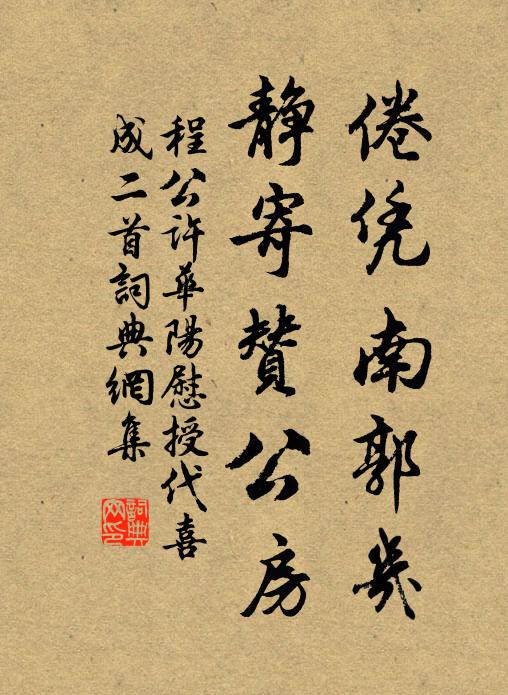 倦凭南郭幾
静寄贊公房
程公许華陽慰授代喜
成二首詞典網集
詞典网印